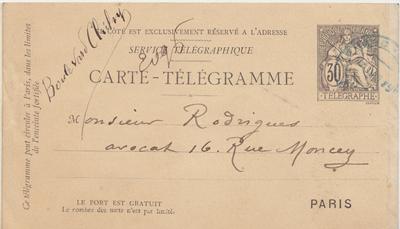 CE CÔTÉ EST EXCLUSIVEMENT RÉSERVÉ A L'ADRESSE
SERVICE TÉLÉGRAPHIQUE
CARTE-TÉLÉGRAMME
Boulevard Clichy
30
TÉLÉGRAPHE
Ce télégramme peut circuler à Paris, dans les limites
de l'enceinte fortifiée.
Monsieur Rodrigues
avocat 16. Rue Moncey
PARIS
LE PORT EST GRATUIT
Le nombre des mots n'est pas limité.